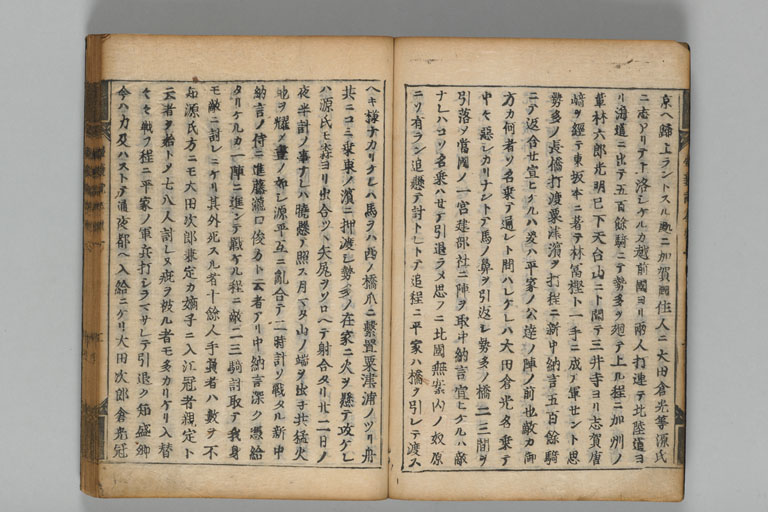 京ヘ歸上ラントスル処ニ加賀國住人ニ大田倉光等源氏
ニ志アリテ上洛シケルカ越前國ヨリ兩人打連テ北陸道ヨ
リ海道ニ出テ五百餘騎ニテ勢多ヲ廻テ上ル程ニ加州ノ
軍林六郎光明已下天台山ニト聞テ三井寺ヨリ志賀唐
崎ヲ經テ東坂本ニ著テ林冨樫ト一手ニ成テ軍セント思
勢多ノ長橋打渡粟津濱ヲ打程ニ新中納言五百餘騎
ニテ返合廿宣ヒケルハ爰ハ平家ノ公達ノ陣ノ前也敵カ御
方カ何者ソ名乗テ通レト問ハレケレハ大田倉光名乗テ
中々惡シカリナントテ馬ノ鼻ヲ引返シ勢多ノ橋二三間ヲ
引落ヲ當國ノ一宮建部社ニ陣ヲ取中納言宣ヒケルハ敵
ナレハコソ名乗ハセテ引退ラメ思フニ此國無案内ノ奴原
ニソ有ラン追懸テ討トレトテ追程ニ平家ハ橋ヲ引レテ渡ス
ヘキ様ナカリケレハ馬ヲハ西ノ橋爪ニ繫置粟津浦ノツリ舟
共ニコミ乗東ノ濱ニ押渡シ勢多ノ在家ニ火ヲ懸テ攻ケレ
ハ源氏モ森ヨリ出合ツヽ矢尻ヲソロヘテ射合タリ廿二日ノ
夜半計ノ事ナレハ照ス月ハタ山ノ端ヲ出子共猛火
地ヲ耀メ晝ノ如シ源平互ニ亂合テ一時計ソ戰タル新中
納言ノ侍ニ進藤瀧口俊方ト云者アリ中納言深ク憑給
タリケルカ一陣ニ進ンテ戰ケル程ニ敵二三騎討取テ我身
モ敵ニ討レニケリ其外死スル者十餘人手負者ハ數ヲ不
知源氏方ニモ大田次郎兼定カ嫡子ニ入江冠者親定ト
云者ヲ始トメ七八人討レヌ疵ヲ被ル者モ多カリケリ入替
々々戰フ程ニ平家ノ軍兵打シラマサレテ引退ク知盛卿
今ハ力及ハストテ通夜都ヘ入給ニケリ大田次郎倉光冠